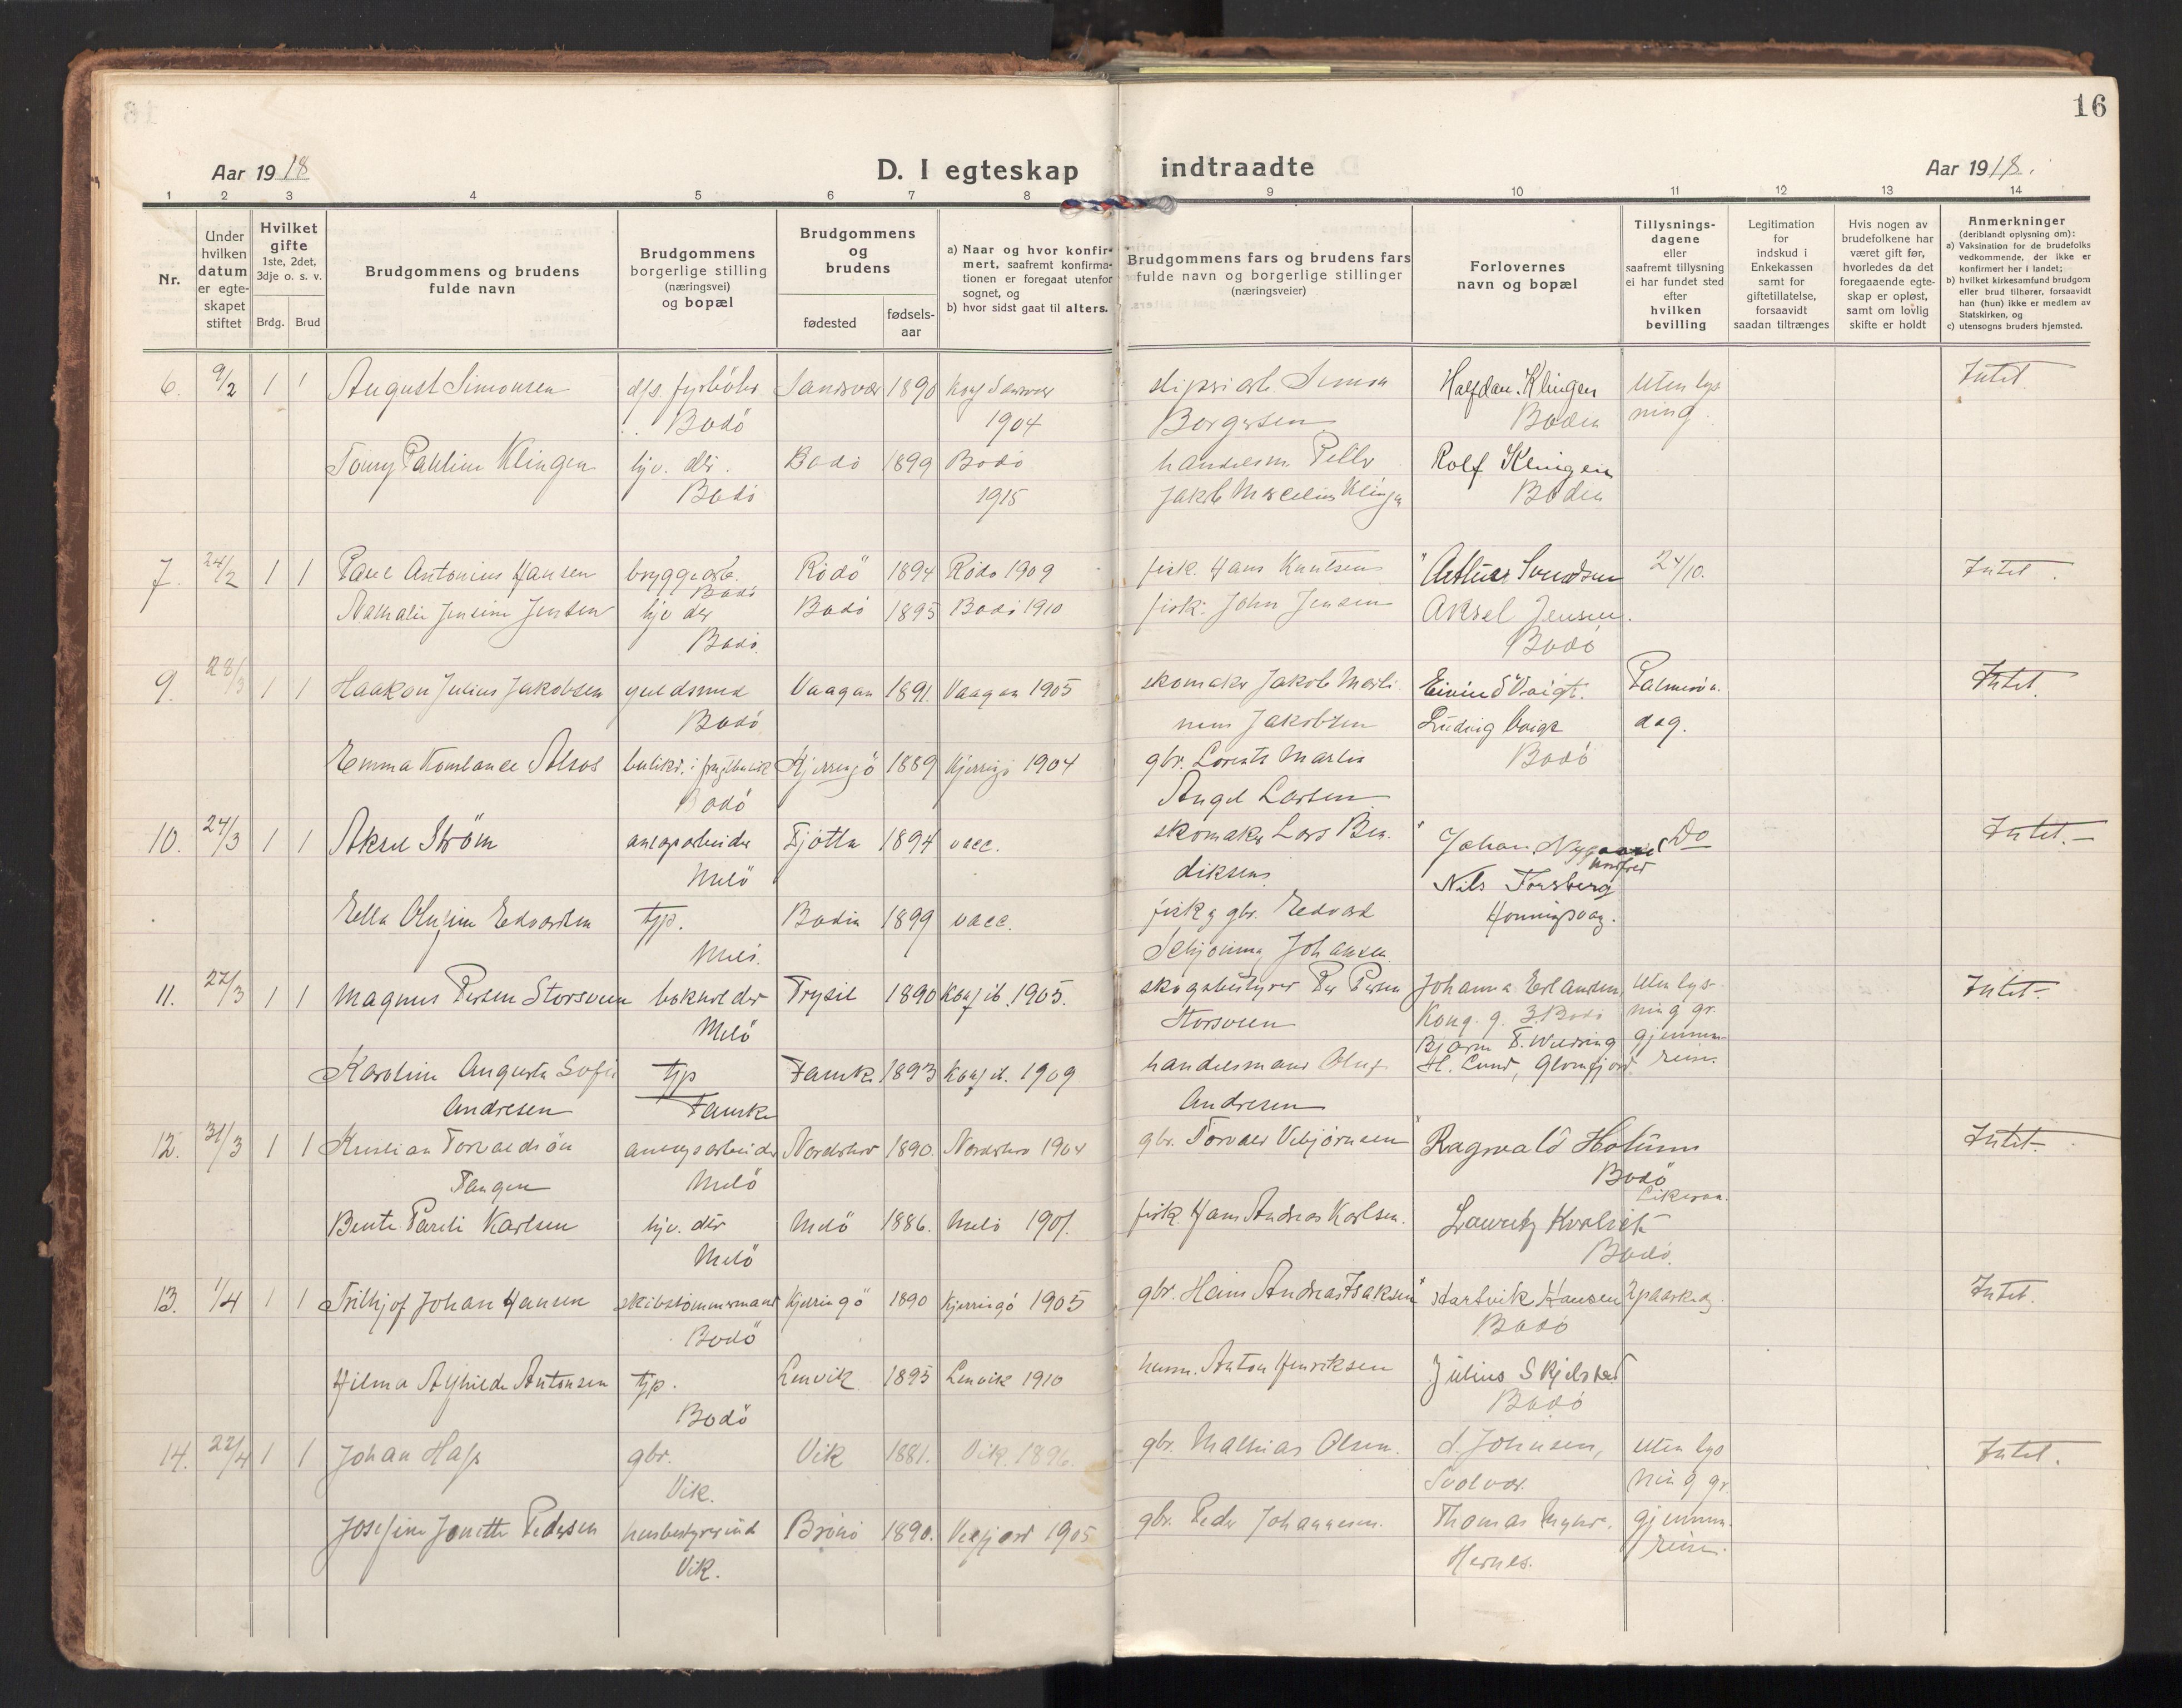 16
Aar 1918
D. I egteskap indtraadte
Aar 1918.
1 2 3 4 5 6 7 8 9 10 11 12 13 14
Nr.
Under hvilken datum er egteskapet stiftet
Hvilket gifte 1ste, 2det, 3dje o. s. v.
Brdg. Brud
Brudgommens og brudens fulde navn
Brudgommens borgerlige stilling (næringsvei) og bopæl
Brudgommens og brudens
fødested
fødsels-aar
a) Naar og hvor konfirmert, saafremt konfirmationen er foregaat utenfor sognet, og
b) hvor sidst gaat til alters.
Brudgommens fars og brudens fars fulde navn og borgerlige stillinger (næringsveier)
Forlovernes navn og bopæl
Tillysningsdagene eller saafremt tillysning ei har fundet sted efter hvilken bevilling
Legitimation for indskud i Enkekassen samt for giftetillatelse, forsaavidt saadan tiltrænges
Hvis nogen av brudefolkene har været gift før, hvorledes da det foregaaende egteskap er opløst, samt om lovlig skifte er holdt
Anmerkninger (deriblandt oplysning om):
a) Vaksination for de brudefolks vedkommende, der ikke er konfirmert her i landet;
b) hvilket kirkesamfund brudgom eller brud tilhører, forsaavidt han (hun) ikke er medlem av Statskirken, og
c) utensogns bruders hjemsted.
6. 9/2 1 1 August Simonsen Sandsvær 1890 Simon Halfdan Klingen Uten lys Intet.
Bodö 1904 Borgersen Bodin ning.
Klingen hjv. dtr. Bodö 1899 Bodö handelsm. Rolf Klingen
Bodö 1915 Bodin
7. 24/2 1 1 Paul Antonius Hansen bryggearb. Rödö 1894 Rödö 1909 fisk. Hans Knutsen Svendsen 24/10. Intet.
Bodö
Nathalie Jensine Jensen hjv. dtr Bodö 1895 Bodö 1910 fisk. John Jensen Aksel Jensen.
Bodö. Bodö
9. 28/3 1 1 Haakon Julius Jakobsen guldsmed Vaagan 1891. Vaagan 1905 skomaker Jakob Eivind Voigt. Palmesön. Intet.
Bodö Jakobsen Ludvig Voigt dag.
Emma Konstance Kjerringö 1889 Kjerringö 1904 gbr. Lorents Martin Bodö
Bodö Larsen
10. 24/3 1 1 Aksel Ström anlægsarbeider Tjötta 1894 vacc. skomaker Lars Ben. Johan Nygaard Do Intet.
Melö diksen Nils Forsberg
Ella Edvardsen tjp. Bodin 1899 vacc. fisk. og gbr. Edvard Honningsvag.
Melö. Johansen
11. 27/3 1 1 Magnus Persen Storsveen bokholder Trysil 1890 Konf. ib. 1905. skogsbestyrer Per Persen Johanna Erlandsen, Uten lys- Intet.
Melö Storsveen Kong. g. 3. Bodö ning gr.
Karoline Augusta Sofie tjp Fauske 1893 Konf. ib. 1909 handelsmand Oluf H. Lund, Glomfjord. reise.
Andresen Fauske Andresen
12. 31/3 1 1 Kristian anlægsarbeider 1890. 1904 gbr. Ragnvald Intet.
Tangen Melö Bodö
Karlsen hjv. dtr Melö 1886. Melö 1901. fisk. Hans Andreas Karlsen. Lauritz
Melö Bodö.
13. 1/4 1 1 Frithjof Johan Hansen skibstömmermand Kjerringö 1890 Kjerringö 1905 gbr. Hans Andreas Isaksen Hartvik Hansen 2 paaskedag. Intet.
Bodö Bodö
Hilma Antonsen tjp. Lenvik 1895 Lenvik 1910 husm. Anton Henriksen Julius Skjelstad
Bodö Bodö
14. 22/4 1 1 Johan gbr. Vik 1881. Vik 1896. gbr. Mathias Olsen. Johnsen, Uten lys Intet.
Vik. Svolvær. ning gr.
Josefine Pedersen husbestyrerinde Brönö 1890. Velfjord 1905 gbr. Peder Johannesen. Thomas gjennem-
Vik. reise.